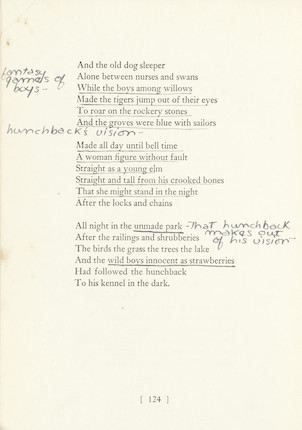 And the old dog sleeper
fantasy
Alone between nurses and swans
games of
While the boys among willows
boys -
Made the tigers jump out of their eyes
To roar on the rockery stones
And the groves were blue with sailors
hunchback's vision -
Made all day until bell time
A woman figure without fault
Straight as a young elm
Straight and tall from his crooked bones
That she might stand in the night
After the locks and chains
All night in the unmade park - That hunchback
After the railings and shrubberies makes out
The birds the grass the trees the lake of his vision -
And the wild boys innocent as strawberries
Had followed the hunchback
To his kennel in the dark.
[ 124 ]